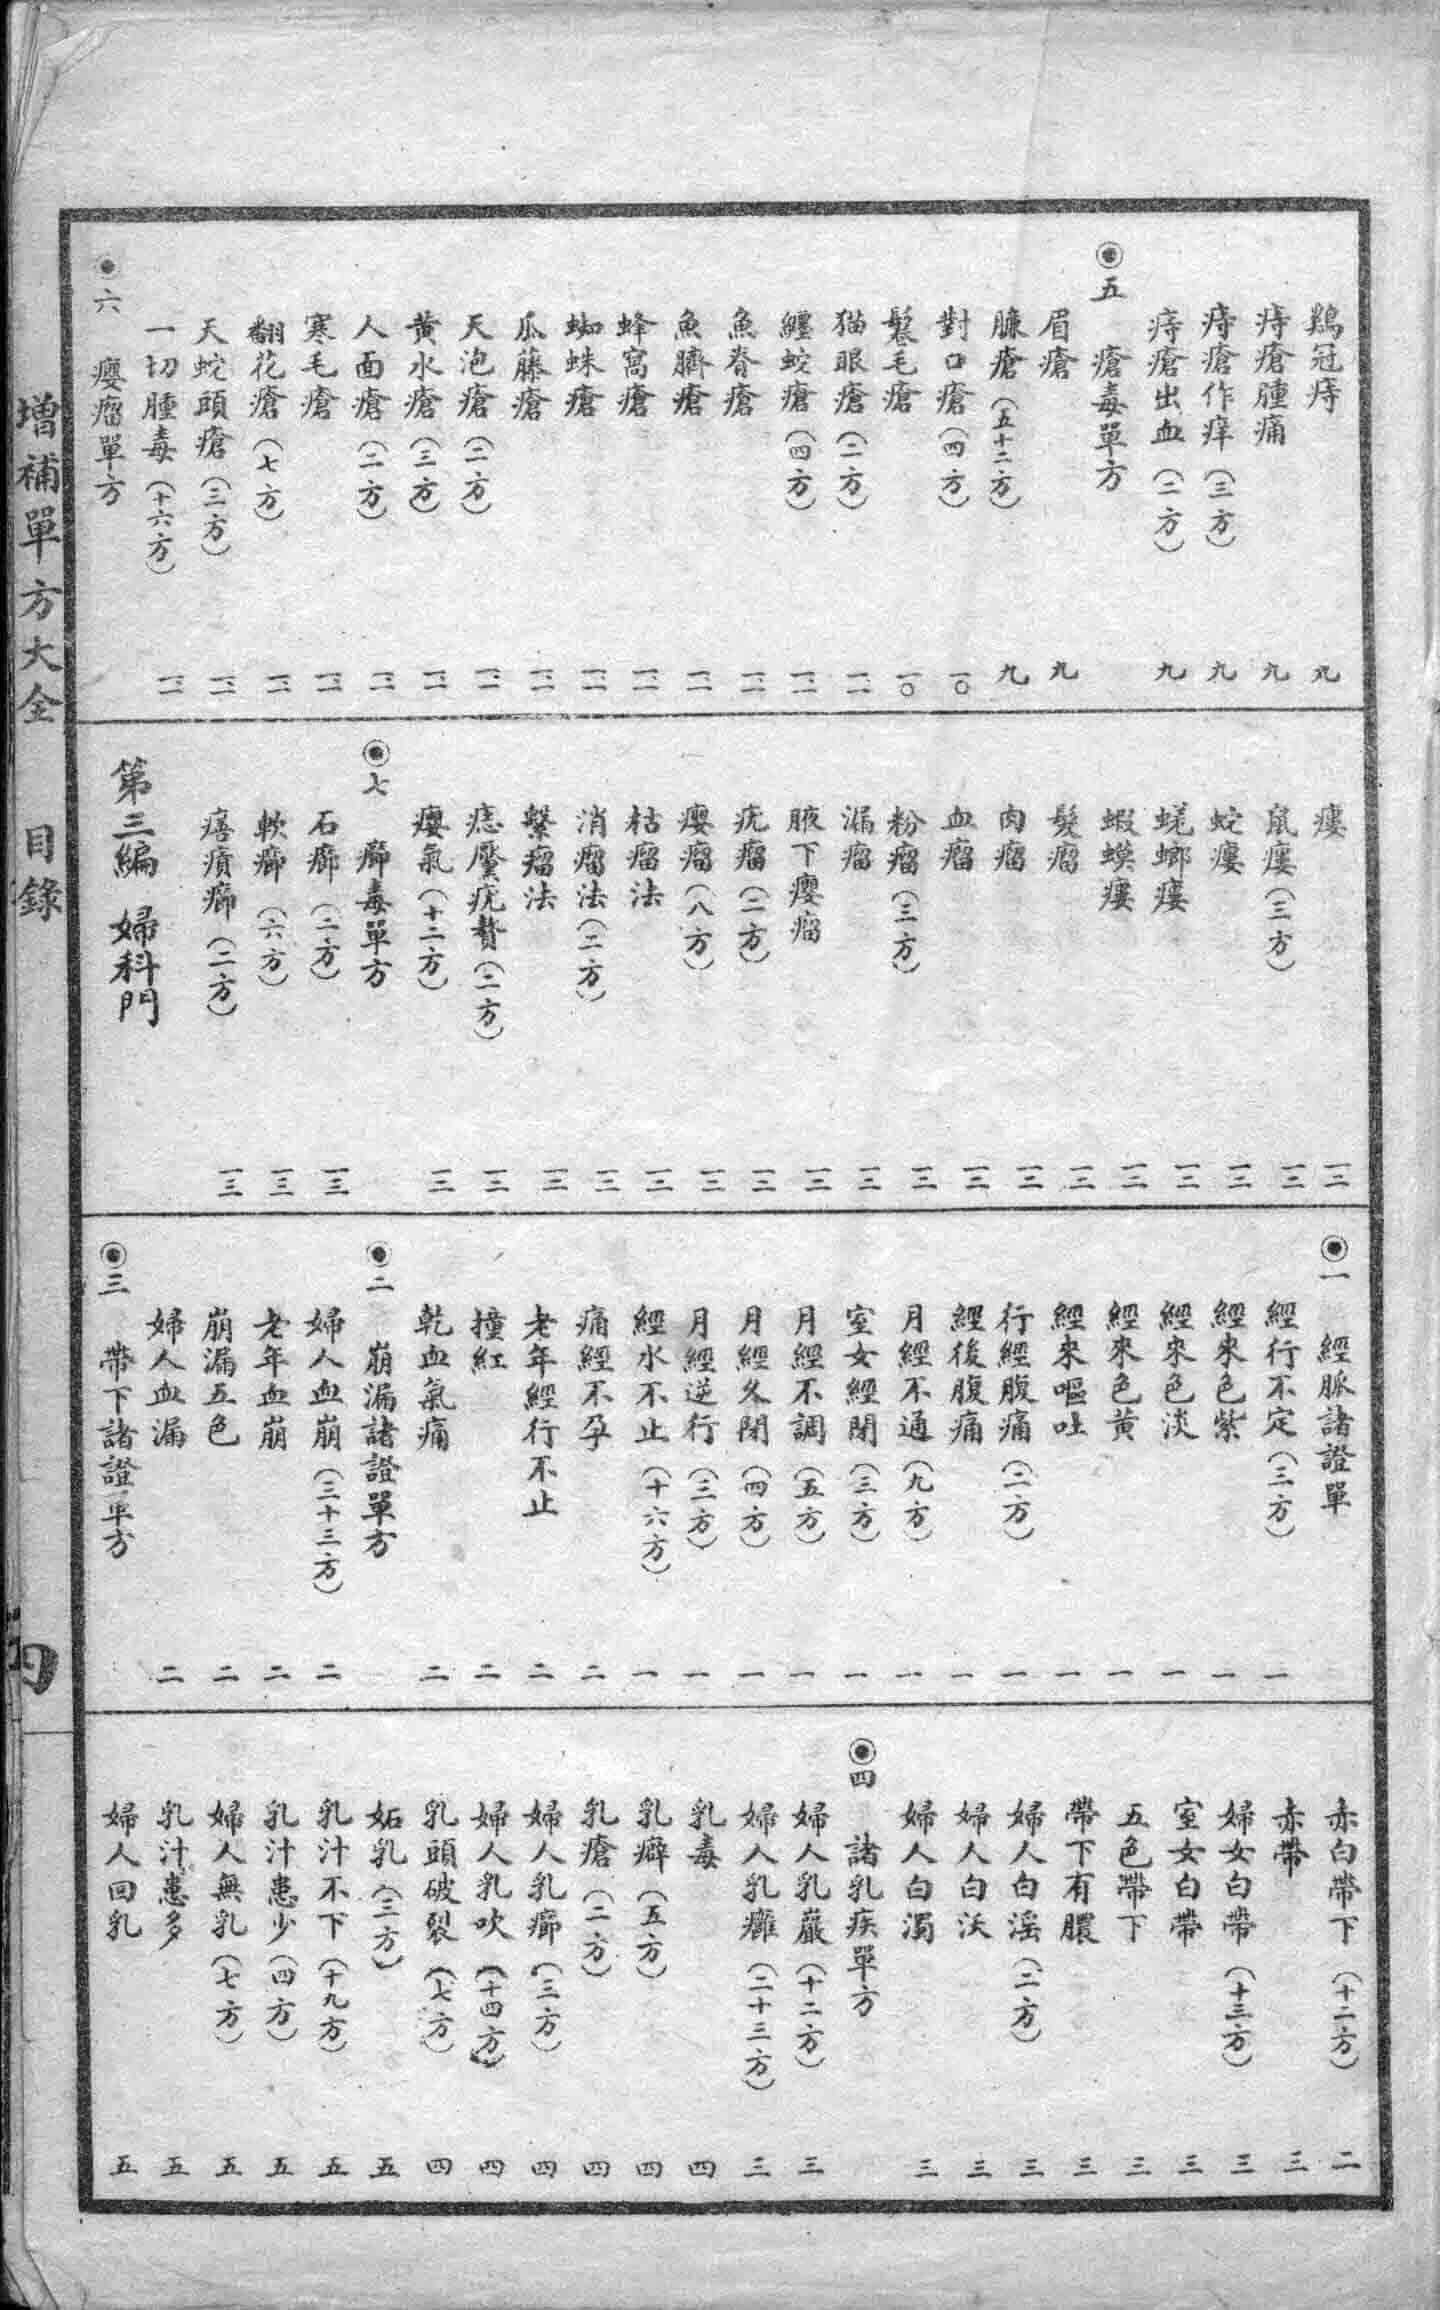 增補單方大全 目錄
鷄冠痔 九
痔瘡腫痛 九
痔瘡作痒(三方) 九
痔瘡出血(二方) 九
◉五 瘡毒單方
眉瘡 九
臁瘡(五十二方) 九
對口瘡(四方) 一〇
鬈毛瘡 一〇
猫眼瘡(二方) 一一
纏蛇瘡(四方) 一一
魚脊瘡 一一
魚臍瘡 一一
蜂窩瘡 一一
蜘蛛瘡 一一
瓜藤瘡 一一
天泡瘡(二方) 一一
黄水瘡(三方) 一一
人面瘡(二方) 一一
寒毛瘡 一一
翻花瘡(七方) 一一
天蛇頭瘡(三方) 一一
一切腫毒(十六方) 一一
◉六 癭瘤單方
瘻 一二
鼠瘻(三方) 一二
蛇瘻 一二
蜣螂瘻 一二
蝦蟆瘻 一二
髮瘤 一二
肉瘤 一二
血瘤 一二
粉瘤(三方) 一二
漏瘤 一二
腋下癭瘤 一二
疣瘤(二方) 一二
癭瘤(八方) 一二
枯瘤法 一二
消瘤法(二方) 一二
繫瘤法 一二
痣黶疣贅(二方) 一二
癭氣(十二方) 一二
◉七 癤毒單方
石癤(二方) 一三
軟癤(六方) 一三
㿍癤(二方) 一三
第三編 婦科門
◉一 經脈諸證單
經行不定(三方) 一
經來色紫 一
經來色淡 一
經來色黃 一
經來嘔吐 一
行經腹痛(二方) 一
經後腹痛 一
月經不通(九方) 一
室女經閉(三方) 一
月經不調(五方) 一
月經久閉(四方) 一
月經逆行(三方) 一
經水不止(十六方) 一
痛經不孕 二
老年經行不止 二
撞紅 二
乾血氣痛 二
◉二 崩漏諸證單方
婦人血崩(三十三方) 二
老年血崩 二
崩漏五色 二
婦人血漏 二
◉三 帶下諸證單方
赤白帶下(十二方) 二
赤帶 三
婦女白帶(十三方) 三
室女白帶 三
五色帶下 三
帶下有膿 三
婦人白淫(二方) 三
婦人白沃 三
婦人白濁 三
◉四 諸乳疾單方
婦人乳巖(十二方) 三
婦人乳癰(二十三方) 三
乳毒 四
乳癖(五方) 四
乳瘡(二方) 四
婦人乳癤(三方) 四
婦人乳吹(十四方) 四
乳頭破裂(七方) 四
妬乳(三方) 五
乳汁不下(十九方) 五
乳汁患少(四方) 五
婦人無乳(七方) 五
乳汁患多 五
婦人回乳 五